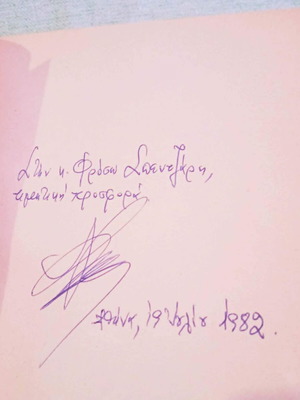 Στην κ. Φρόσω Σπενεζάρη,
τιμητική προσφορά
Αθήνα, 19 Ιουλίου 1982.